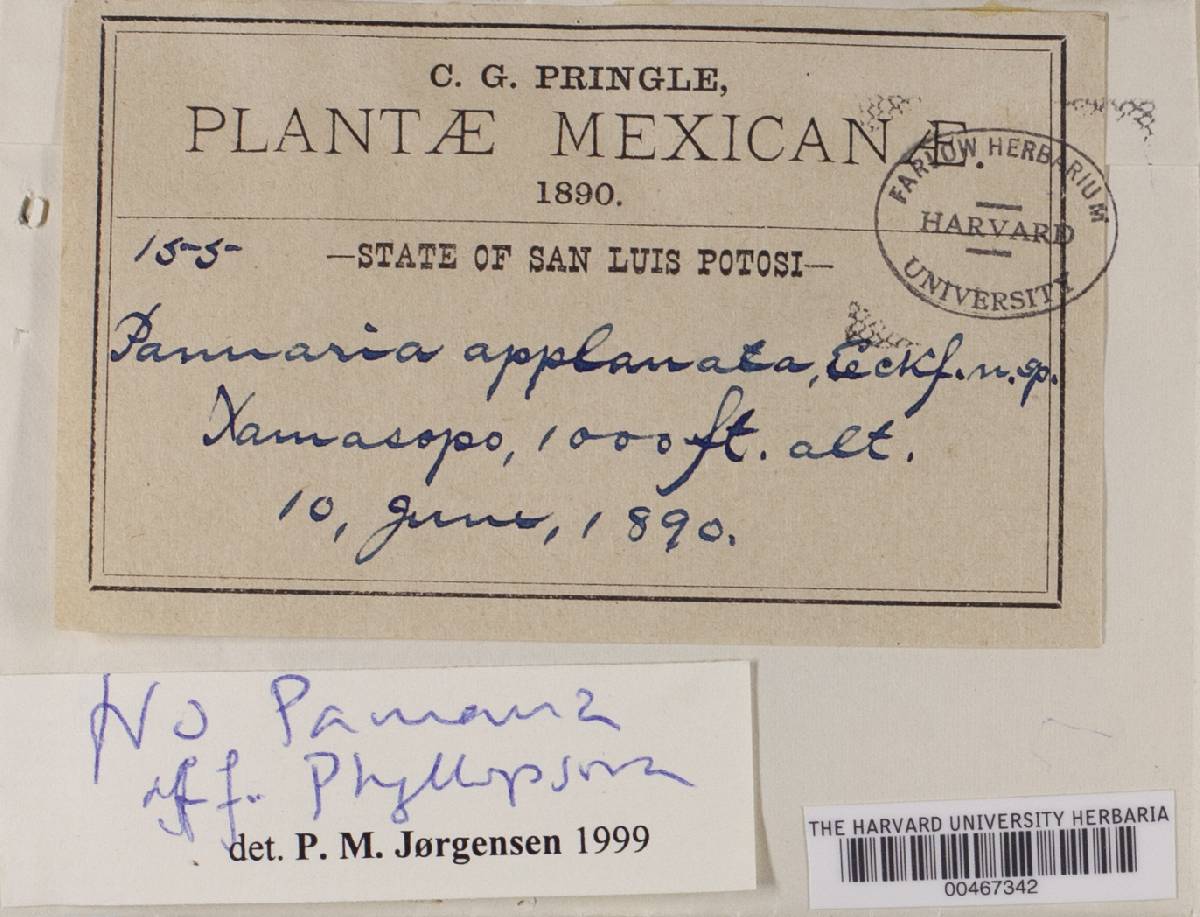 C. G. PRINGLE,
PLANTÆ MEXICANÆ.
1890.
FARLOW HERBARIUM
HARVARD
UNIVERSITY
155
—STATE OF SAN LUIS POTOSI—
Pannaria applanata, Eckf. n. sp.
Xamasopo, 1000 ft. alt.
10, June, 1890.
No Pannaria
aff. Phyllopsora
det. P. M. Jørgensen 1999
THE HARVARD UNIVERSITY HERBARIA
00467342